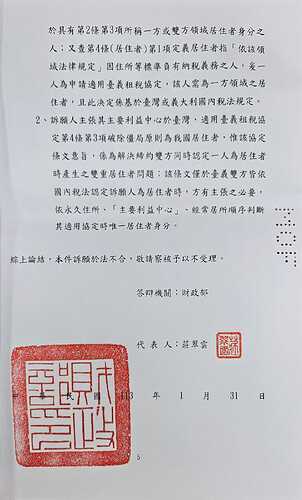 於具有第2條第3項所稱一方或雙方領域居住者身分之
人；又查第4條(居住者)第1項定義居住者指「依該領
域法律規定」因住所等標準負有納稅義務之人，爰一
人為申請適用臺義租稅協定，該人需為一方領域之居
住者，且此決定係基於臺灣或義大利國內稅法規定。
2、訴願人主張其主要利益中心於臺灣，適用臺義租稅協
定第4條第3項破除僵局原則為我國居住者，惟該協定
條文意旨，係為解決締約雙方同時認定一人為居住者
時產生之雙重居住者問題；該條文僅於臺義雙方皆依
國內稅法認定訴願人為居住者時，方有主張之必要，
依永久住所、「主要利益中心」、經常居所順序判斷
其適用協定時唯一居住者身分。
綜上論結，本件訴願於法不合，敬請察核予以不受理。
答辯機關：財政部
代表人：莊翠雲
中華民國113年1月31日
5